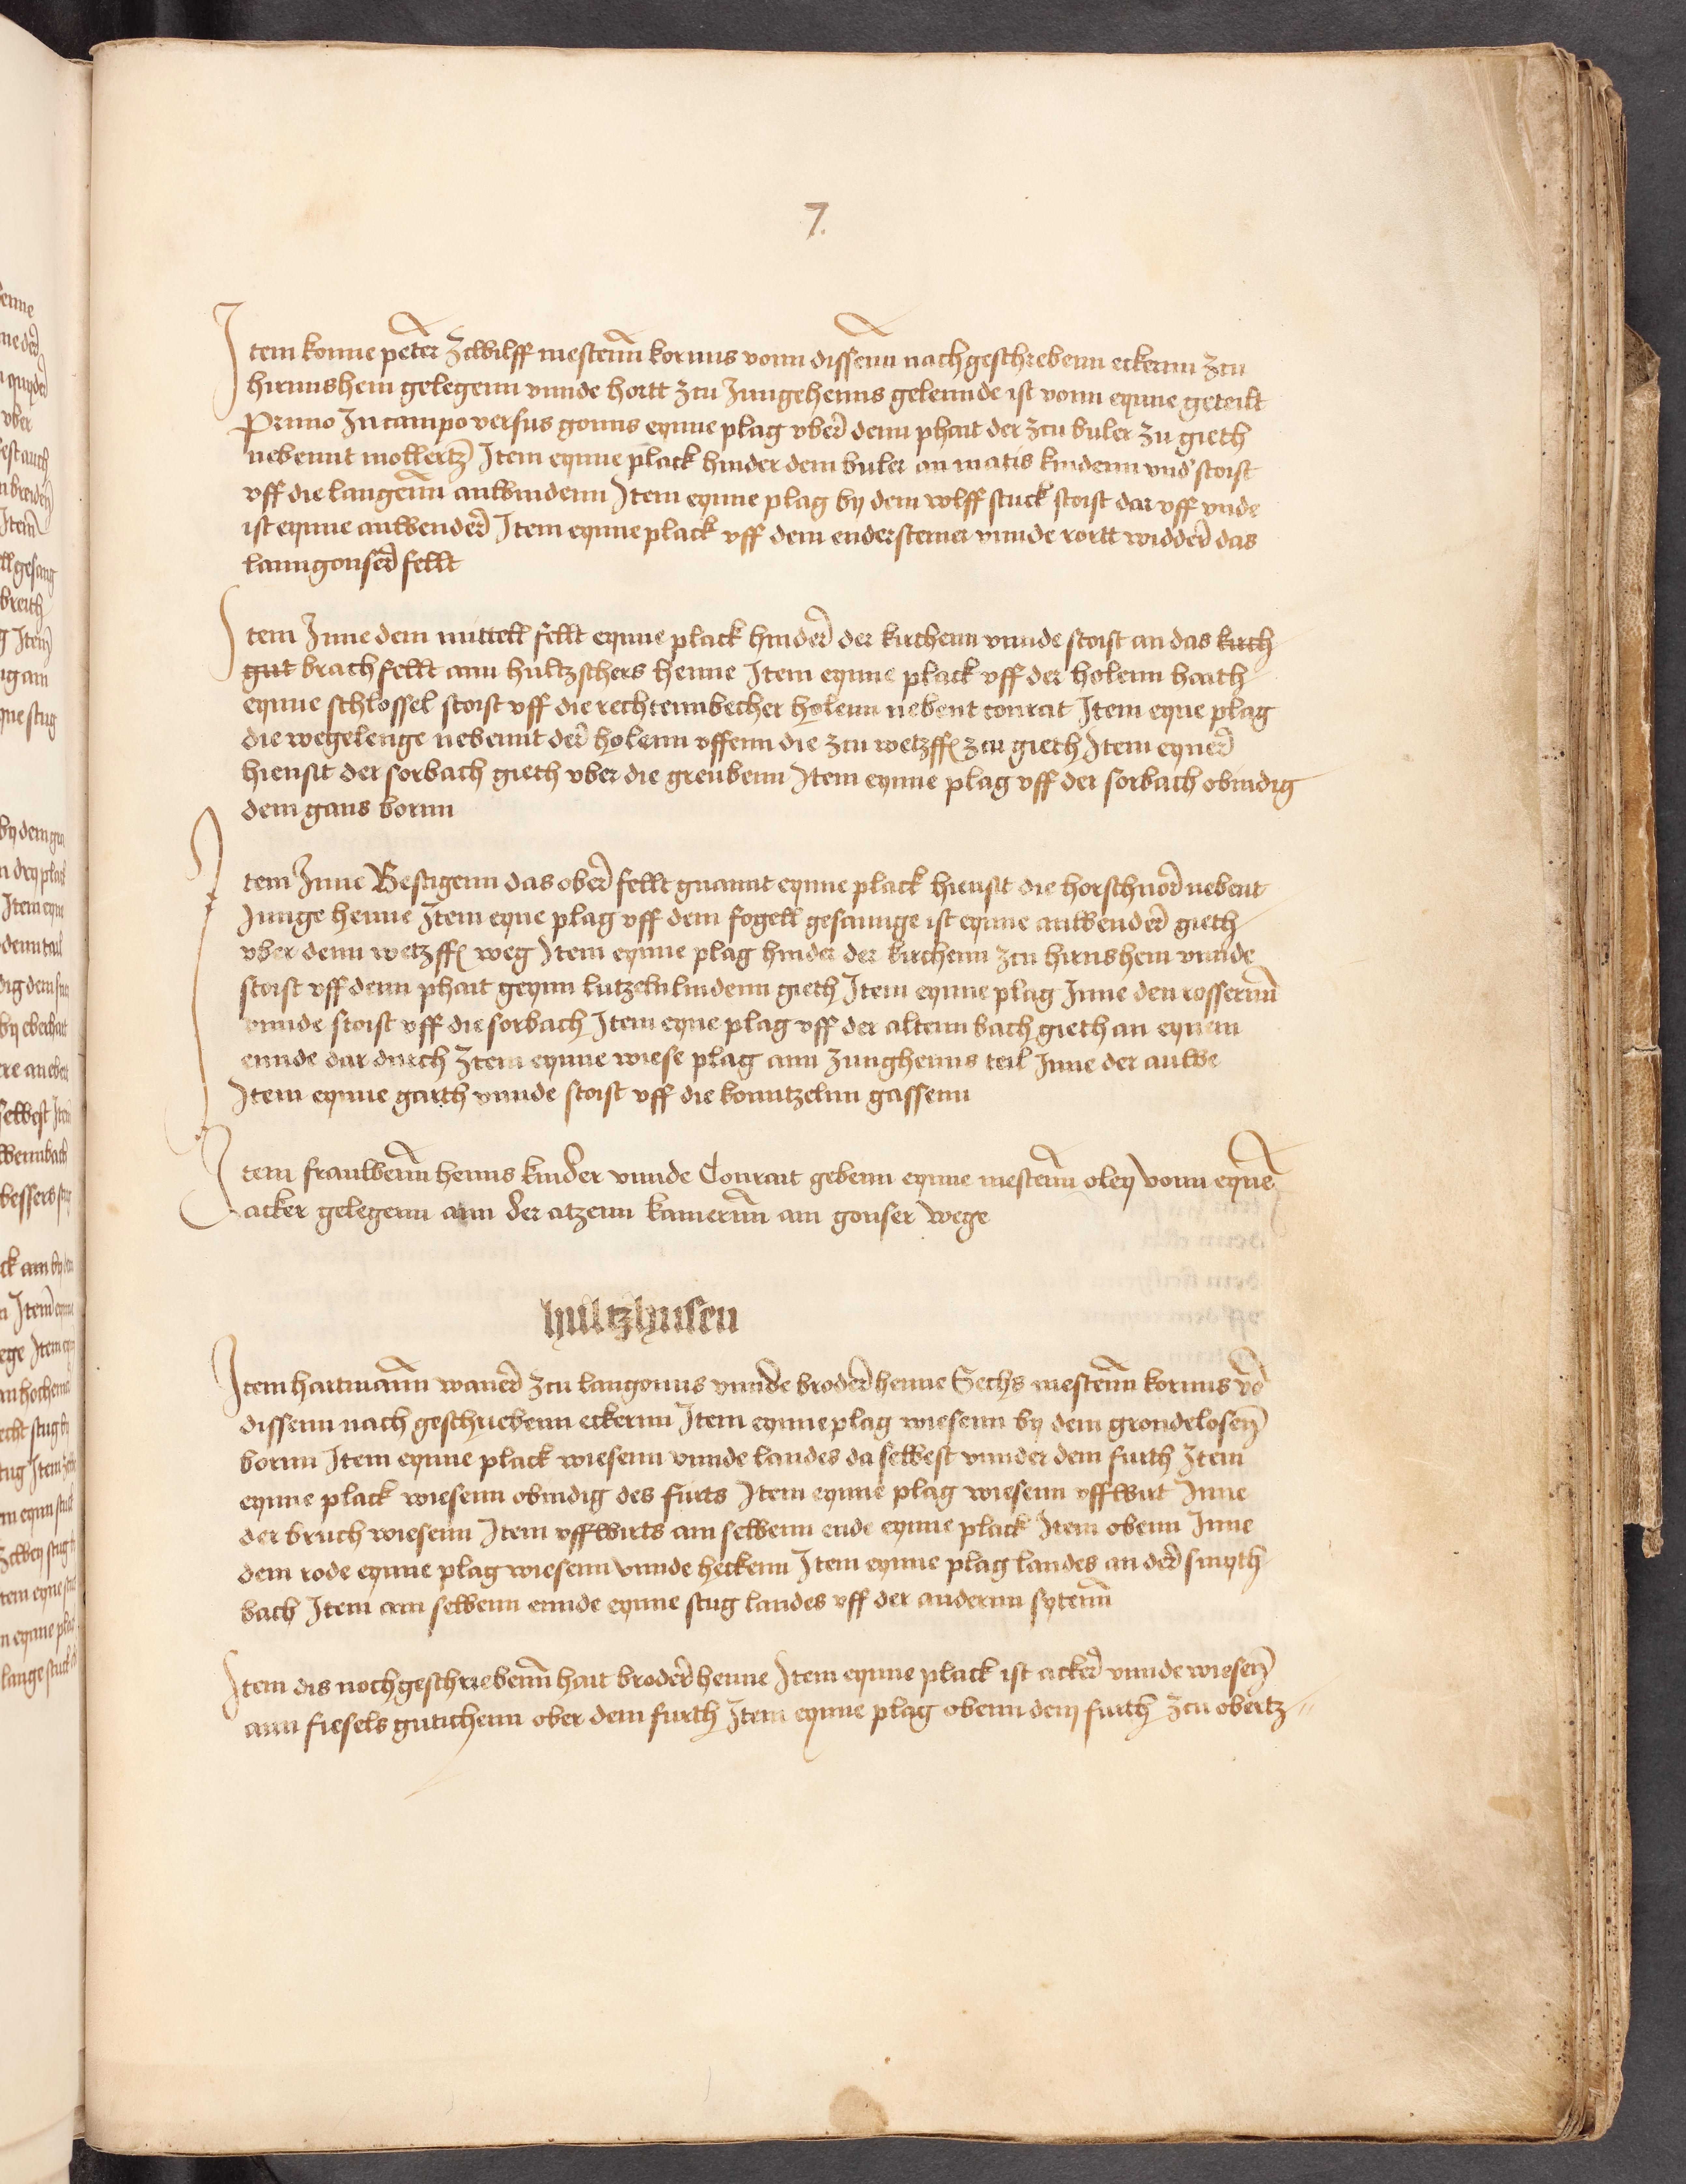 7.
Item konne peter Zcwilff mestenn kornns vonn dissenn nachgeschrebenn eckernn zcu
hirnnshein gelegenn vnnde hortt zcu Jungehenns gelennde ist vonn eynne geteilt
Primo In campo versus gonns eynne plag vber denn phait der zcu buler zu gieth
nebennt mollertz Item eynne plack hinder dem buler an matis kindenn vnd stoist
vff die langenn anwindenn Item eynne plag by dem wlff stuck stoist dar vff vnde
ist eynne anwender Item eynne plack vff dem endersteiner vnnde rortt widder das
lanngonser fellt
Item Inne dem mittell fellt eynne plack hinder der kirchenn vnnde stoist an das kirch
gut brach fellt ann hultzschers henne Item eynne plack vff der holenn haith
eynne schlossel stoist vff die rechtennbecher holenn nebent conrait Item eyne plag
die wegelenge nebennt der holenn vffenn die zcu wetzff zcu gieth Item eyner
hiensit der sorbach gieth vber die greubenn Item eynne plag vff der sorbach obindig
dem gans bornn
Item Inne Bestigenn das ober fellt gnannt eynne plack hiensit die horschnor nebent
Junge henne Item eyne plag vff dem fogell gesannge ist eynne anwender gieth
vber denn wetzff weg Item eynne plag hinder der kirchenn zcu hirnshein vnnde
stoist vff denn phait geynn lutzelnlindenn gieth Item eynne plag Inne den rossernn
vnnde stoist vff die sorbach Item eyne plag vff der altenn bach gieth an eynem
ennde dar durch Item eynne wiese plag ann Junghenns teil Inne der auwe
Item eynne garth vnnde stoist vff die konntzelnn gassenn
Item frauwenn henns kinder vnnde Conrait gebenn eynne mestenn oley vonn eynem
acker gelegenn ann der atzenn kamernn am gonser wege
hultzhusen
Item hartmann waner zcu langonns vnnde broder henne Sechs mestenn kornns vo
dissenn nach geschriebenn eckernn Item eynne plag wiesenn by dem grondelosen
bornn Item eynne plack wiesenn vnnde landes da selbest vnnder dem furth Item
eynne plack wiesenn obindig des furts Item eynne plag wiesenn vffwirt Inne
der bruch wiesenn Item vffwirts am selbenn ende eynne plack Item obenn Inne
dem rode eynne plag wiesenn vnnde heckenn Item eynne plag landes an der smyth
bach Item am selbenn ennde eynne stug landes vff der andernn sytenn
Item dis nochgeschriebenn hait broder henne Item eynne plack ist acker vnnde wiesen
ann fiesels gutichenn ober dem furth Item eynne plag obenn dem furth zcu obertz